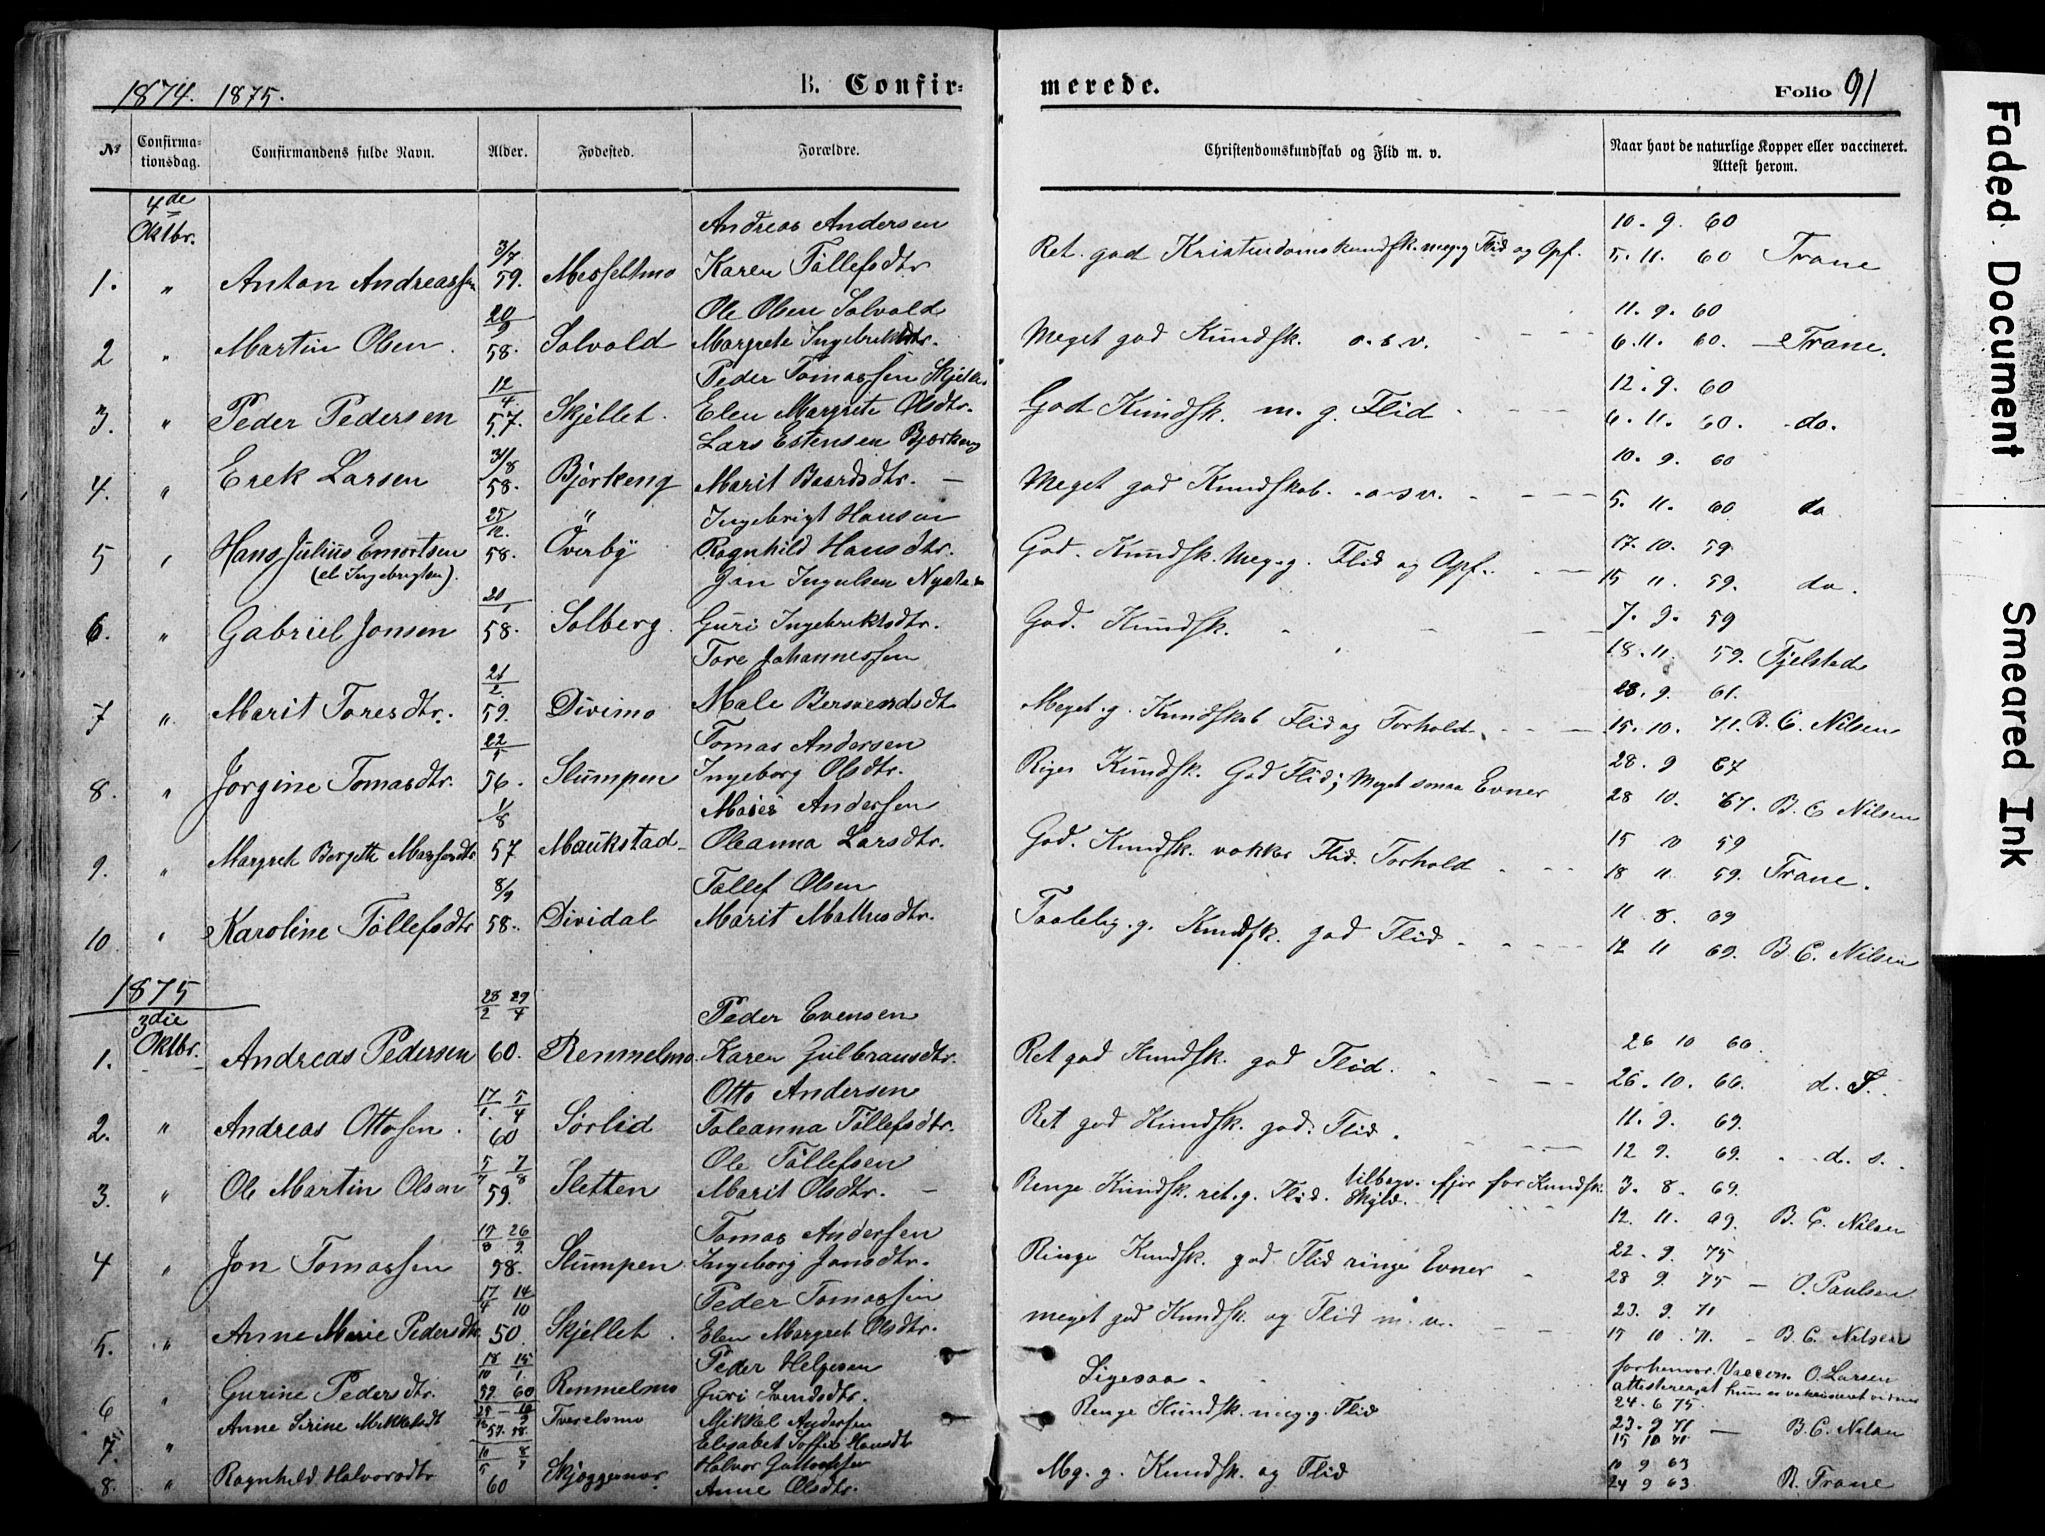 1874. 1875.
B. Confirmerede.
Folio 91
№
Confirmationsdag.
Confirmandens fulde Navn.
Alder.
Fødested.
Forældre.
Christendomskundskab og Flid m. v.
Naar havt de naturlige Kopper eller vaccineret. Attest herom.
4de Oktbr.
1. " Anton Andreassen 3/7 59. Messeltmo Andreas Andersen Karen Tollefsdtr Ret god Kristendomskundsk. meg. g Flid og Opf. 10. 9. 60 5. 11. 60 Trane
2 " Martin Olsen 20/9 58. Solvold Ole Olsen Solvold Margrete Ingebriktsdtr. Meget god Kundsk. o.s.v. 11. 9. 60 6. 11. 60. Trane.
3. " Peder Pedersen 12/4 57. Skjellet. Peder Tomassen Elen Margrete Olsdtr. God Kundsk. m. g. Flid 12. 9. 60 6. 11. 60. do.
4. " Erek Larsen 31/8 58. Bjørkeng Lars Estensen Bjørkeng Marit Baardsdtr. Meget god Kundskab. o.s.v. 10. 9. 60 5. 11. 60 do
5 " Hans Julius Emortsen (el. Ingebrigtsen). 25/12. 58. " Øverby Ingebrigt Hansen Ragnhild Hansdtr. God. Kundsk. Meg. g. Flid og Opf. 17. 10. 59 15 11. 59. do.
6. " Gabriel Jonsen 20/1 58. Solberg. Jon Ingulsen Guri Ingebriktsdtr. God. Kundsk. 7. 9. 59 18. 11. 59. Fjelstad
7 " Marit Toresdtr. 21/2. 59. Divimo Tore Johannessen Male Bersvendsdt Meget. g. Kundskab Flid og Forhold. 28. 9. 61. 15. 10. 71. B. C. Nilsen
8. " Jørgine Tomasdtr. 22/5 56. Slumpen Tomas Andersen Ingeborg Olsdtr. Kundsk. God Flid; Meget smaa Evner 28. 9 67 28 10. 67. B. C Nilsen
9. " Margret Bergette 1/8 57 Maukstad Andersen Oleanna Larsdtr. God. Kundsk. vakker Flid. Forhold 15 10 59 18 11. 59. Trane.
10 " Karoline Tollefsdtr 8/9 58. Dividal Tollef Olsen Marit Mathisdtr. Taalelig. g. Kundsk. god Flid 11 8. 69 12 11 69. B. C. Nilsen
1875
3die Oktbr.
1. Andreas Pedersen 28/2 29/4 60. Rennelmo. Peder Evensen Karen Gulbransdtr. Ret god Kundsk. god Flid. 26 10 66. 26. 10. 66. d. S.
2. " Andreas Ottosen. 17/1. 5/4 60 Sørlid Otto Andersen Toleanna Tollefsdtr. Ret god Kundsk. god. Flid. 11. 9. 69. 12 9. 69. d. s.
3. " Ole Martin Olsen 5/7 7/8 59. Sletten Ole Tollefsen Marit Olsdtr. Ringe Kundsk. ret. g. Flid. fjor for Kundsk. Skyld. 3. 8. 69. 12. 11. 69. B. C. Nilsen
4 " Jon Tomassen 17/8 26/9. 58. Slumpen Tomas Andersen Ingeborg Jonsdtr. Ringe Kundsk. god Flid ringe Evner 22. 9. 75 28 9. 75 O. Paulsen
5. " Anne Marie Pedersdtr 17/4 14/10 50. Skjellet. Peder Tomassen Elen Margret Olsdtr. meget god Kundsk. og Flid m. v. 23. 9. 71 15 10. 71. B. C. Nilsen
6 " Gurine Pedersdtr. 18/10 15/1. 59. 60 Rennelmo Peder Helgesen Guri Svendsdtr. Ligesaa. forhenvær. Vaccin. O. Larsen attesterer, at hun er vakcineret 24. 6 75.
7. " Anne Serine Mikkelsdt 57. 58. Tverelvmo Mikkel Andersen Elisabet Soffie Hansdt Ringe Kundsk. meg. g. Flid 23. 9 71 15 10 71 B. C. Nilsen
8. " Ragnhild Halvorsdtr 10/5 8/7 60 Halvor Anne Olsdtr. Mg. g. Kundsk. og Flid 10 9 63 24 9 63 R. Trane
Faded Document
Smeared Ink